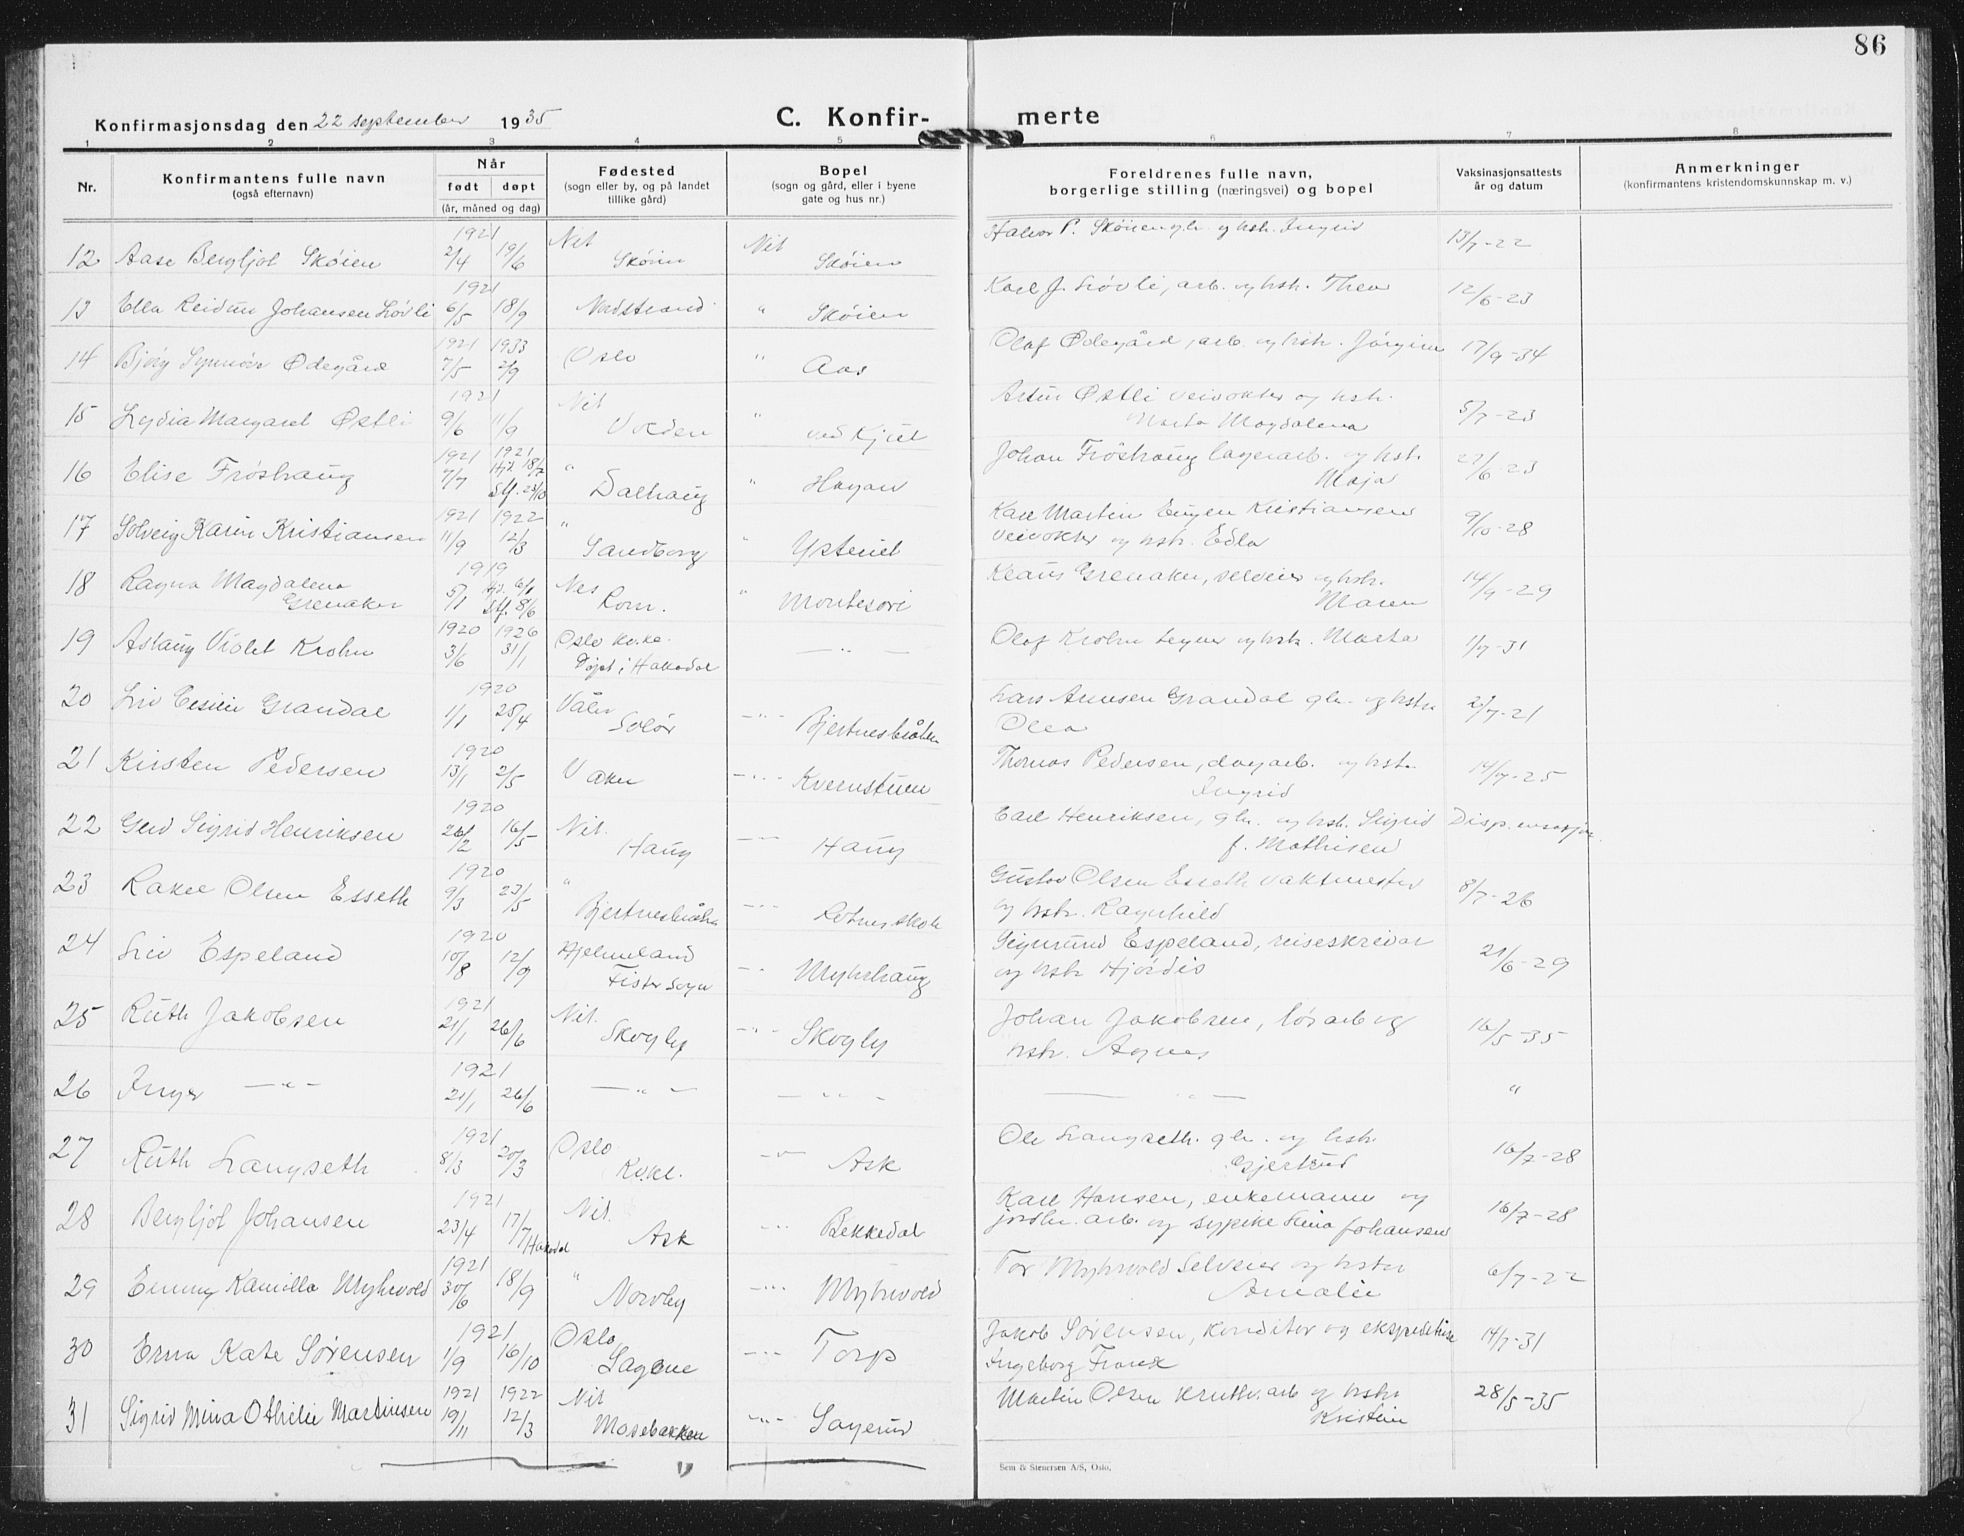 86
Konfirmasjonsdag den 22 september 1935
C. Konfir-
merte
1 2 3 4 5 6 7 8
Nr.
Konfirmantens fulle navn
(også efternavn)
Når
født døpt
(år, måned og dag)
Fødested
(sogn eller by, og på landet
tillike gård)
Bopel
(sogn og gård, eller i byene
gate og hus nr.)
Foreldrenes fulle navn,
borgerlige stilling (næringsvei) og bopel
Vaksinasjonsattests
år og datum
Anmerkninger
(konfirmantens kristendomskunnskap m. v.)
1921 Nit Nit Halvor P. Skøien gbr. og hstr. Ingrid
12 Aase Bergljot Skøien 2/4 19/6 Skøien Skøien 13/7-22
1921 Karl J. Løvli, arb. og hstr. Thea 12/6-23
13 Ella Reidun Johansen Løvli 6/5 18/9 Nordstrand " Skøien
1921 1933 Olaf Ødegård, arb. og hstr. Jørgine 17/9-34
14 Bjørg Synnøve Ødegård 7/5 2/9 Oslo " Aas
1921 Nit Artur Østli veivokter og hstr.
15 Lydia Margaret Østli 9/6 11/9 " ved Kjul Marta Magdalena 5/7-23
1921 1921 Johan Frøshaug lagerarb. og hst.
16 Elise Frøshaug 7/7 Hj. 18/7 Stf. 23/10 " Dalhaug " Hagan Maja 27/6-23
1921 1922 Karl Martin Eugen Kristiansen
17 Solveig Karin Kristiansen 11/9 12/3 " Sandborg " veivokter og hstr. Edla 9/10-28
1919 Klaus Grenaker, selveier og hstr.
18 Ragna Magdalena Grenaker 5/1 Hj. 6/1 Stf. 8/6 Nes Rom. " Montesori Maren 14/9-29
1920 1926 Olaf Krohn og hstr. Marta
19 Aslaug Violet Krohn 3/6 31/1 Oslo Døpt i Hakadal — " — 1/7-31
1920 Lars Arnesen Grandal gbr. og hstr
20 Liv Cesilie Grandal 1/1 25/4 Våler Solør - " - Bjertnesbråten Olea 2/7-21
1920 Thomas Pedersen, dagarb. og hstr.
21 Kirsten Pedersen 13/1 2/5 Vaker - " - Kvernstuen Ingrid 14/7-25
1920 Carl Henriksen, gbr. og hstr. Sigrid
22 Gerd Sigrid Henriksen 26/2 16/5 Nit. Haug - " - Haug f. Mathisen Disp.
1920 Gustav Olsen Esseth vaktmester
23 Rakel Olsen Esseth 9/3 23/5 " Bjertnesbråten - " - Rotnes skole og hstr. Ragnhild 8/7-26
1920 Sigmund Espeland, reiseskredar
24 Liv Espeland 10/8 12/9 Hjelmeland Fister sogn - " - Myhrhaug og hstr Hjørdis 21/6-29
1921 Johan Jakobsen, løsarb og
25 Ruth Jakobsen 21/1 26/6 Nit. Skogly - " - Skogly hstr. Agnes 16/5-35
1921
26 Inger — " — 21/1 26/6 — " — — " — — " — "
1921 Ole Langseth. gbr. og hstr.
27 Ruth Langseth 8/3 20/3 Oslo - " - Ask Gjertrud 16/7-28
1921 Karl Hansen, enkemann og
28 Bergljot Johansen 23/4 17/7 Hakadal Nit. Ask - " - Bekkedal jordbr. arb. og sypike Lina Johansen 16/7-28
1921 Tor Myhrvold Selveier og hstr
29 Emmy Kamilla Myhrvold 30/6 18/9 " Nordby - " - Myhrvold Amalie 6/7-22
1921 Jakob Sørensen, Konditor og ekspeditrise
30 Erna Kate Sørensen 1/9 16/10 Oslo Sagene - " - Torp Ingeborg Frank 14/7-31
1921 1922 Martin Olsen kruttv. arb og hstr
31 Sigrid Mina Othilie Martinsen 19/11 12/3 Nit Mosebakken - " - Sagerud Kristine 28/5-35
Sem & Stenersen A/S, Oslo.